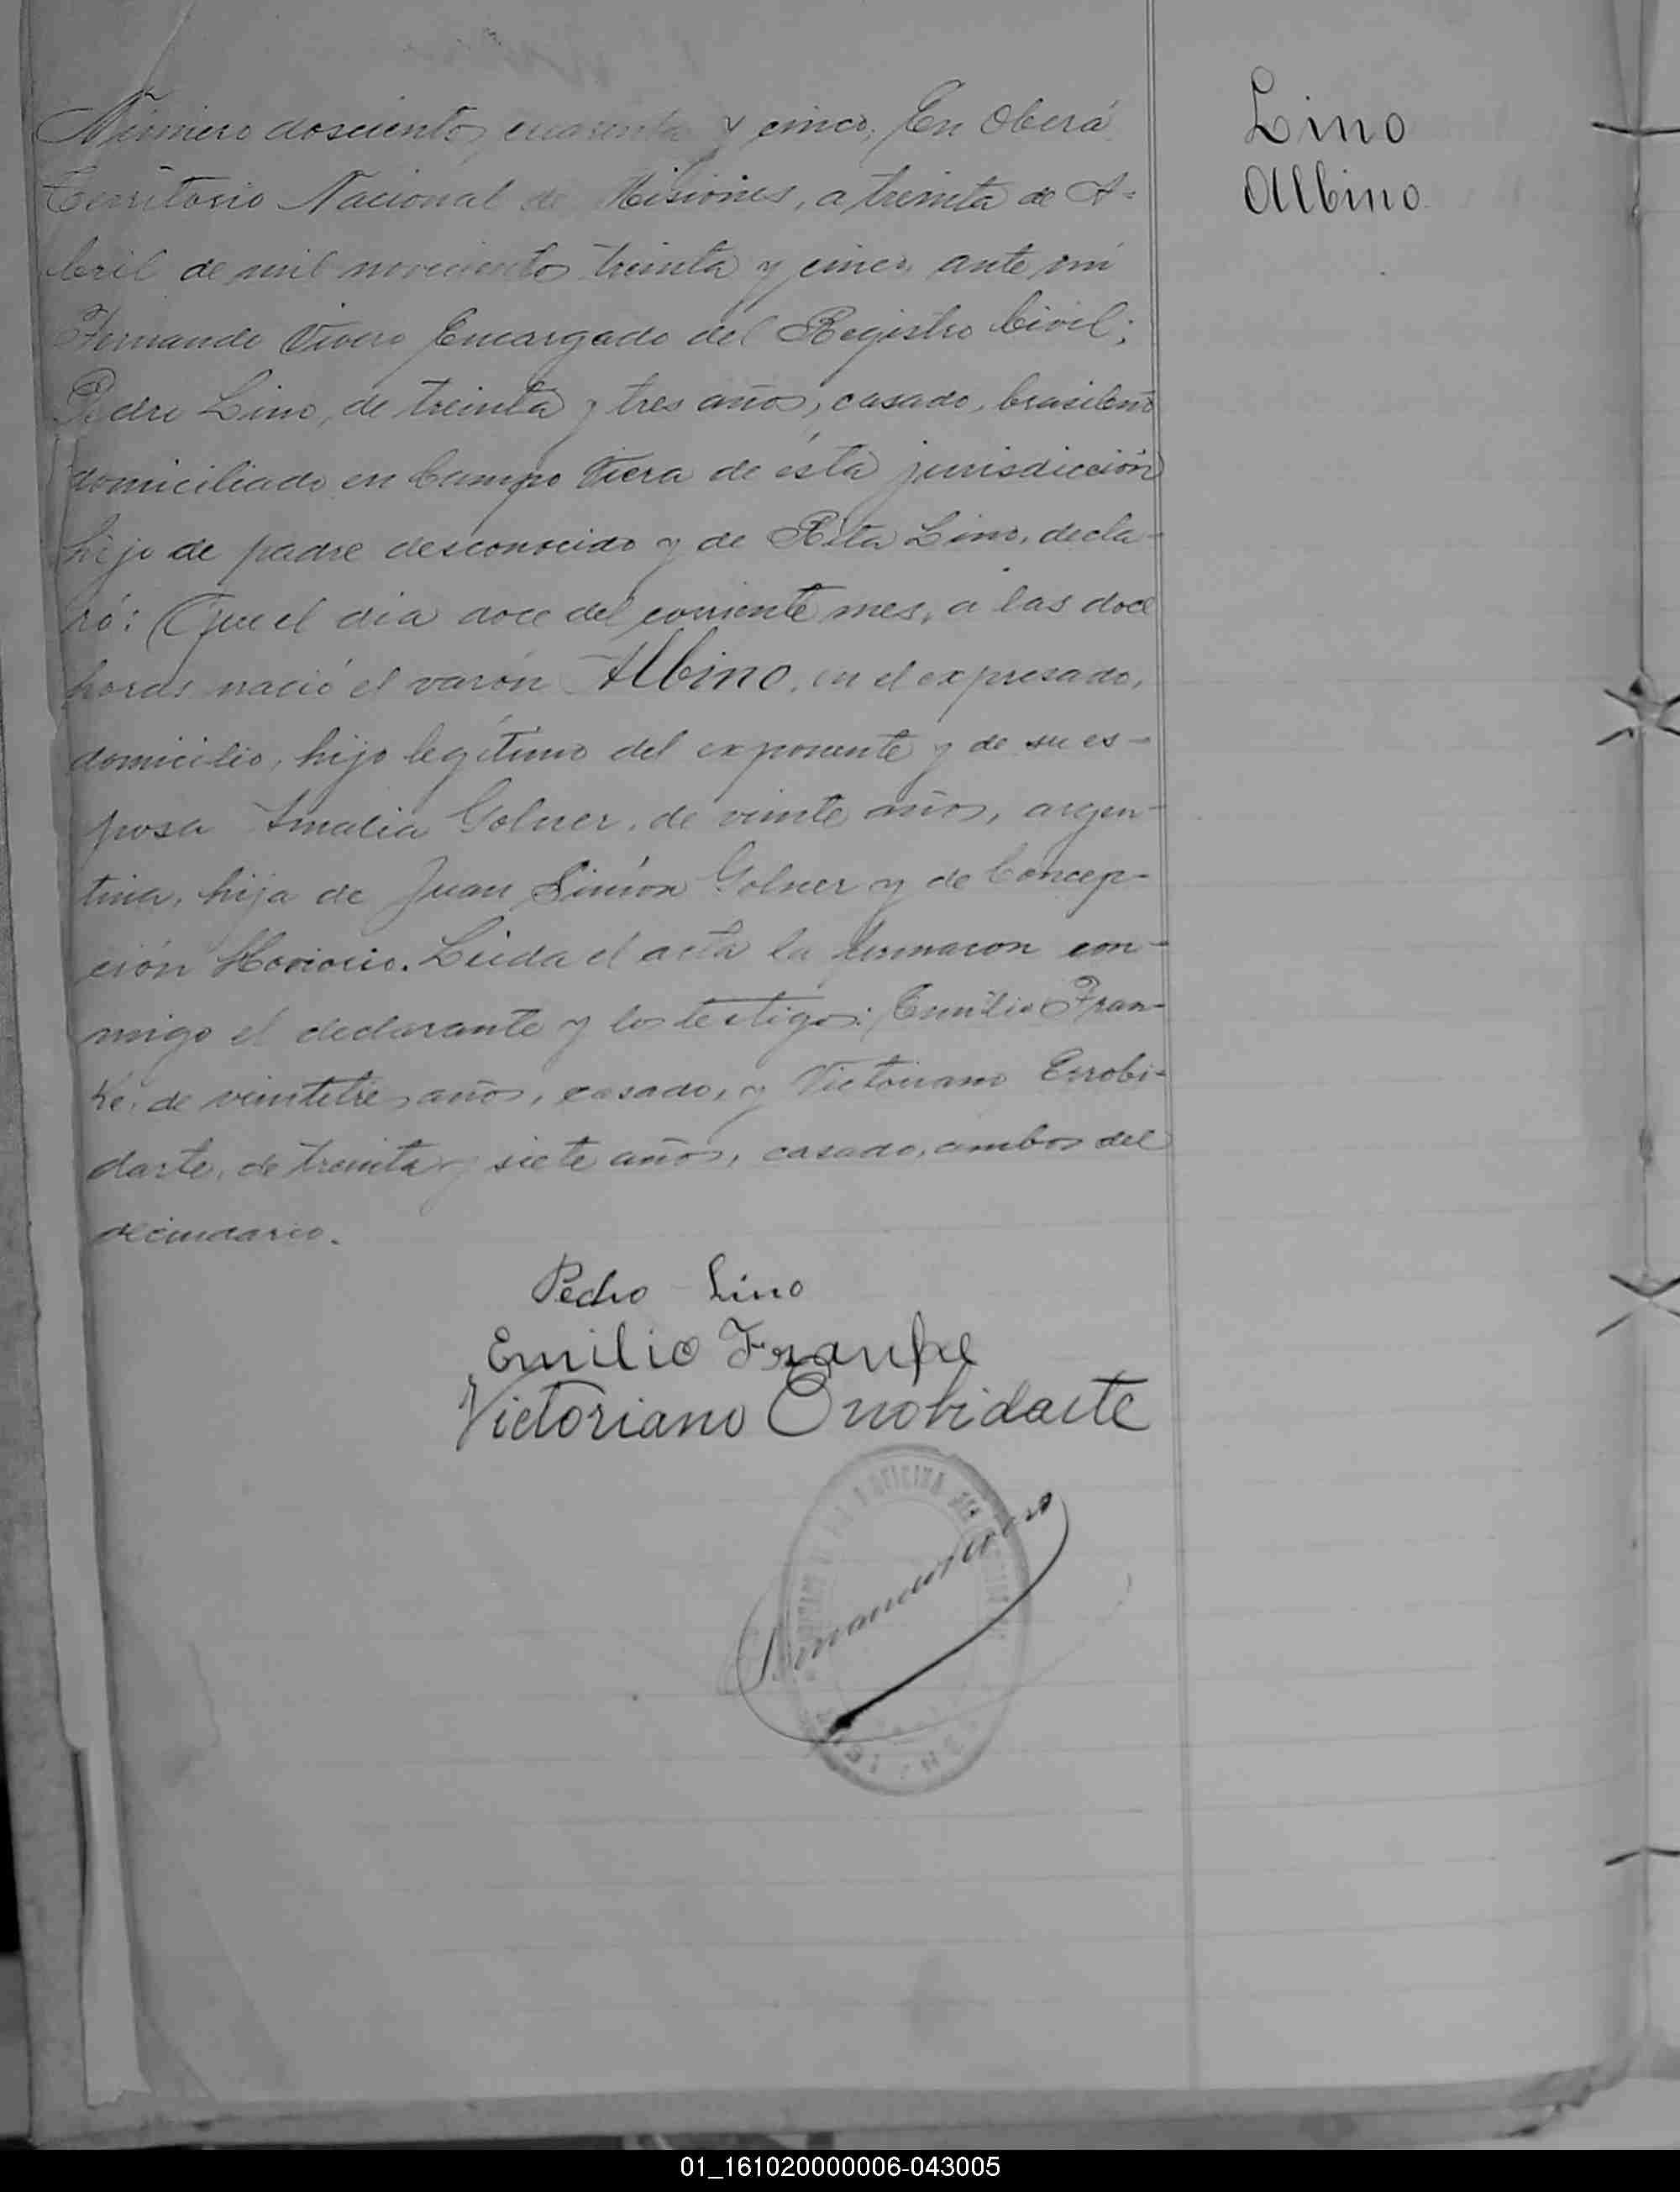 Número doscientos cuarenta y cinco, En Oberá
Territorio Nacional de Misiones, a treinta de A=
bril de mil novecientos treinta y cinco, ante mi
Fernando Vivero Encargado del Registro Civil;
Pedro Lino, de treinta y tres años, casado, brasileño
domiciliado en Campo Viera de ésta jurisdicción
hijo de padre desconocido y de Rita Lino, decla-
ró: Que el día doce del corriente mes, a las doce
horas nació el varón Albino, en el expresado,
domicilio, hijo legítimo del exponente y de su es-
posa Amalia Golner, de veinte años, argen-
tina, hija de Juan Simón Golner y de Concep-
ción. Leida el acta la firmaron con-
migo el declarante y los testigos: Emilio Fran-
ke, de veintitres años, casado, y Victoriano Errobi-
darte, de treinta y siete años, casado, ambos del
vecindario.
Pedro Lino
Emilio Franke
Victoriano Errobidarte
Lino
Albino
01_161020000006-043005